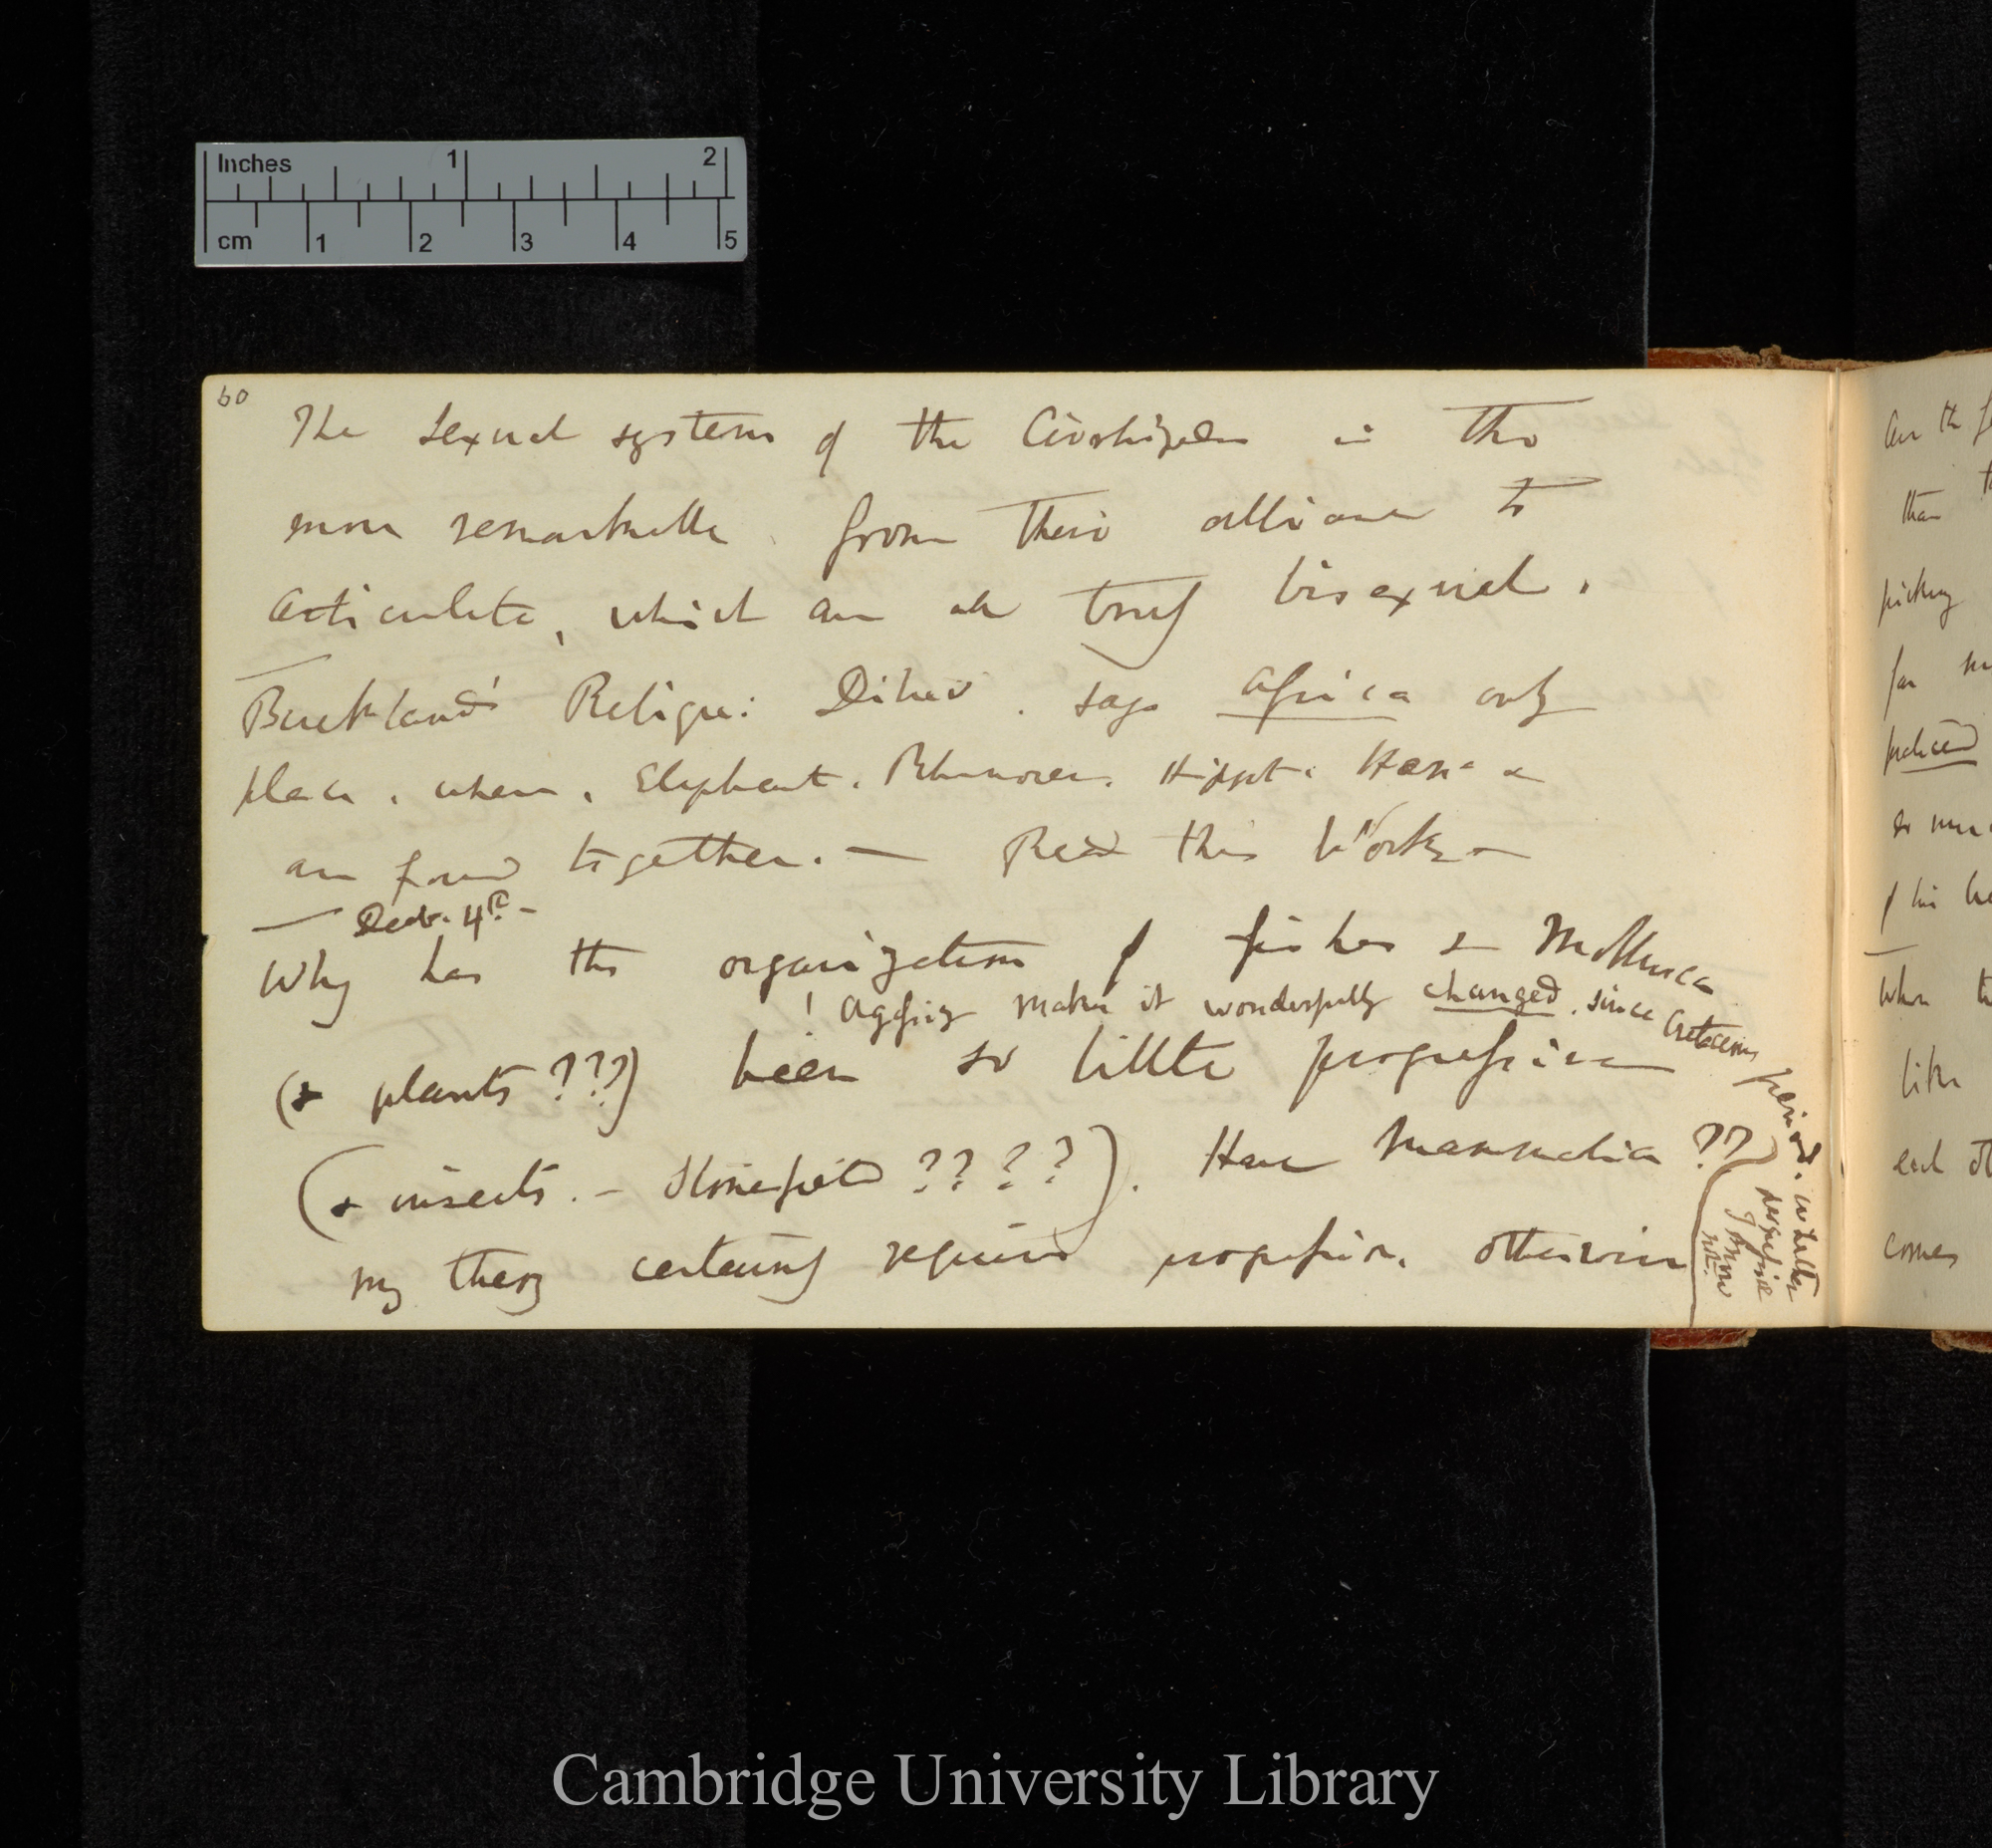 Inches 1 2
cm 1 2 3 4 5
60
The sexual system of the Cirrhipedes is the
more remarkable from their alliance to
Articulata, which are all truly bisexual.
Buckland' Reliqu: Diluv. says Africa only
place, where, Elephant, Rhinoceros, Hippot: Hyaena
are found together. — Read this Work —
— Decb. 4th. —
Why has the organization of fishes & Mollusca
! Agassiz makes it wonderfully changed, since Cretaceous period. — whether progressive I know not.
(& plants ???) been so little progressive
(& insects. — Stonesfield ????). Have Mammalia ??
my theory certainly requires progression, otherwise
Are the
than
picking
far
produced
of his
When
like
each
comes
Cambridge University Library